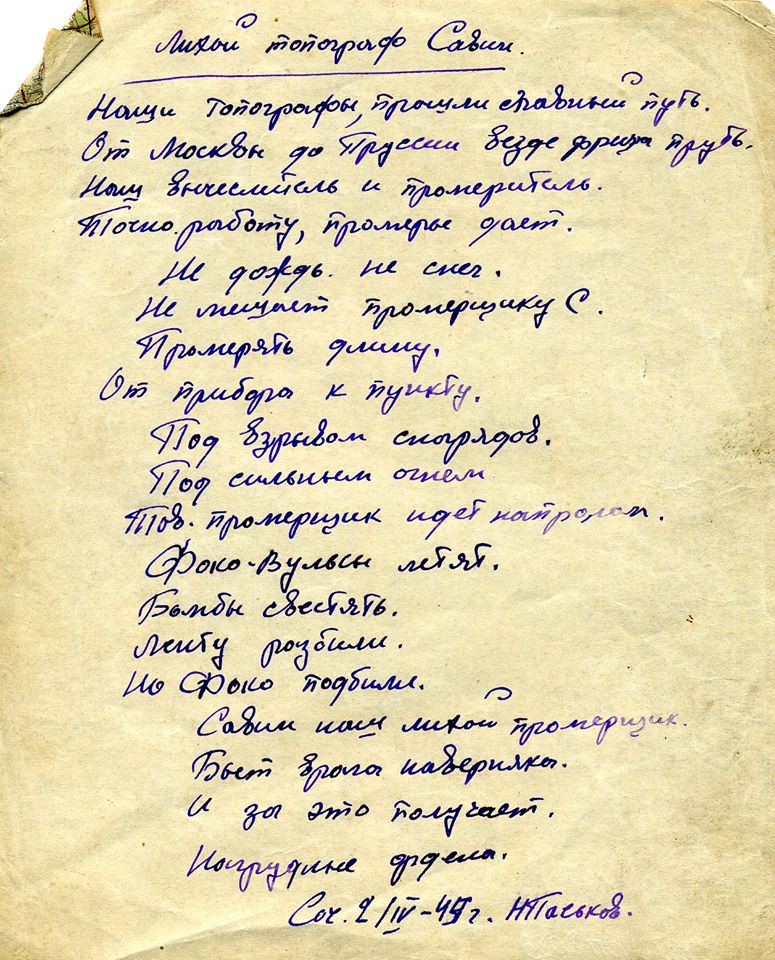 Лихой топограф Савин.
Наши топографы, прошли славный путь.
От Москвы до Пруссии везде фрица пруть.
Наш вычеслитель и промеритель.
Точно работу, промеры дает.
Не дождь. не снег.
Не мешает промерщику С.
Промерять длину.
От прибора к пункту.
Под взрывом снарядов.
Под сильным огнем
Тов. промерщик идет напролом.
Фоко-Вульсы летят.
Бомбы свестять.
Ленту розбили.
Но Фоко подбили.
Савин наш лихой промерщик.
Бьет врага наверняка.
И за это получает.
Нагрудные ордена.
Соч. 2/IV-45 г. Н Паськов.